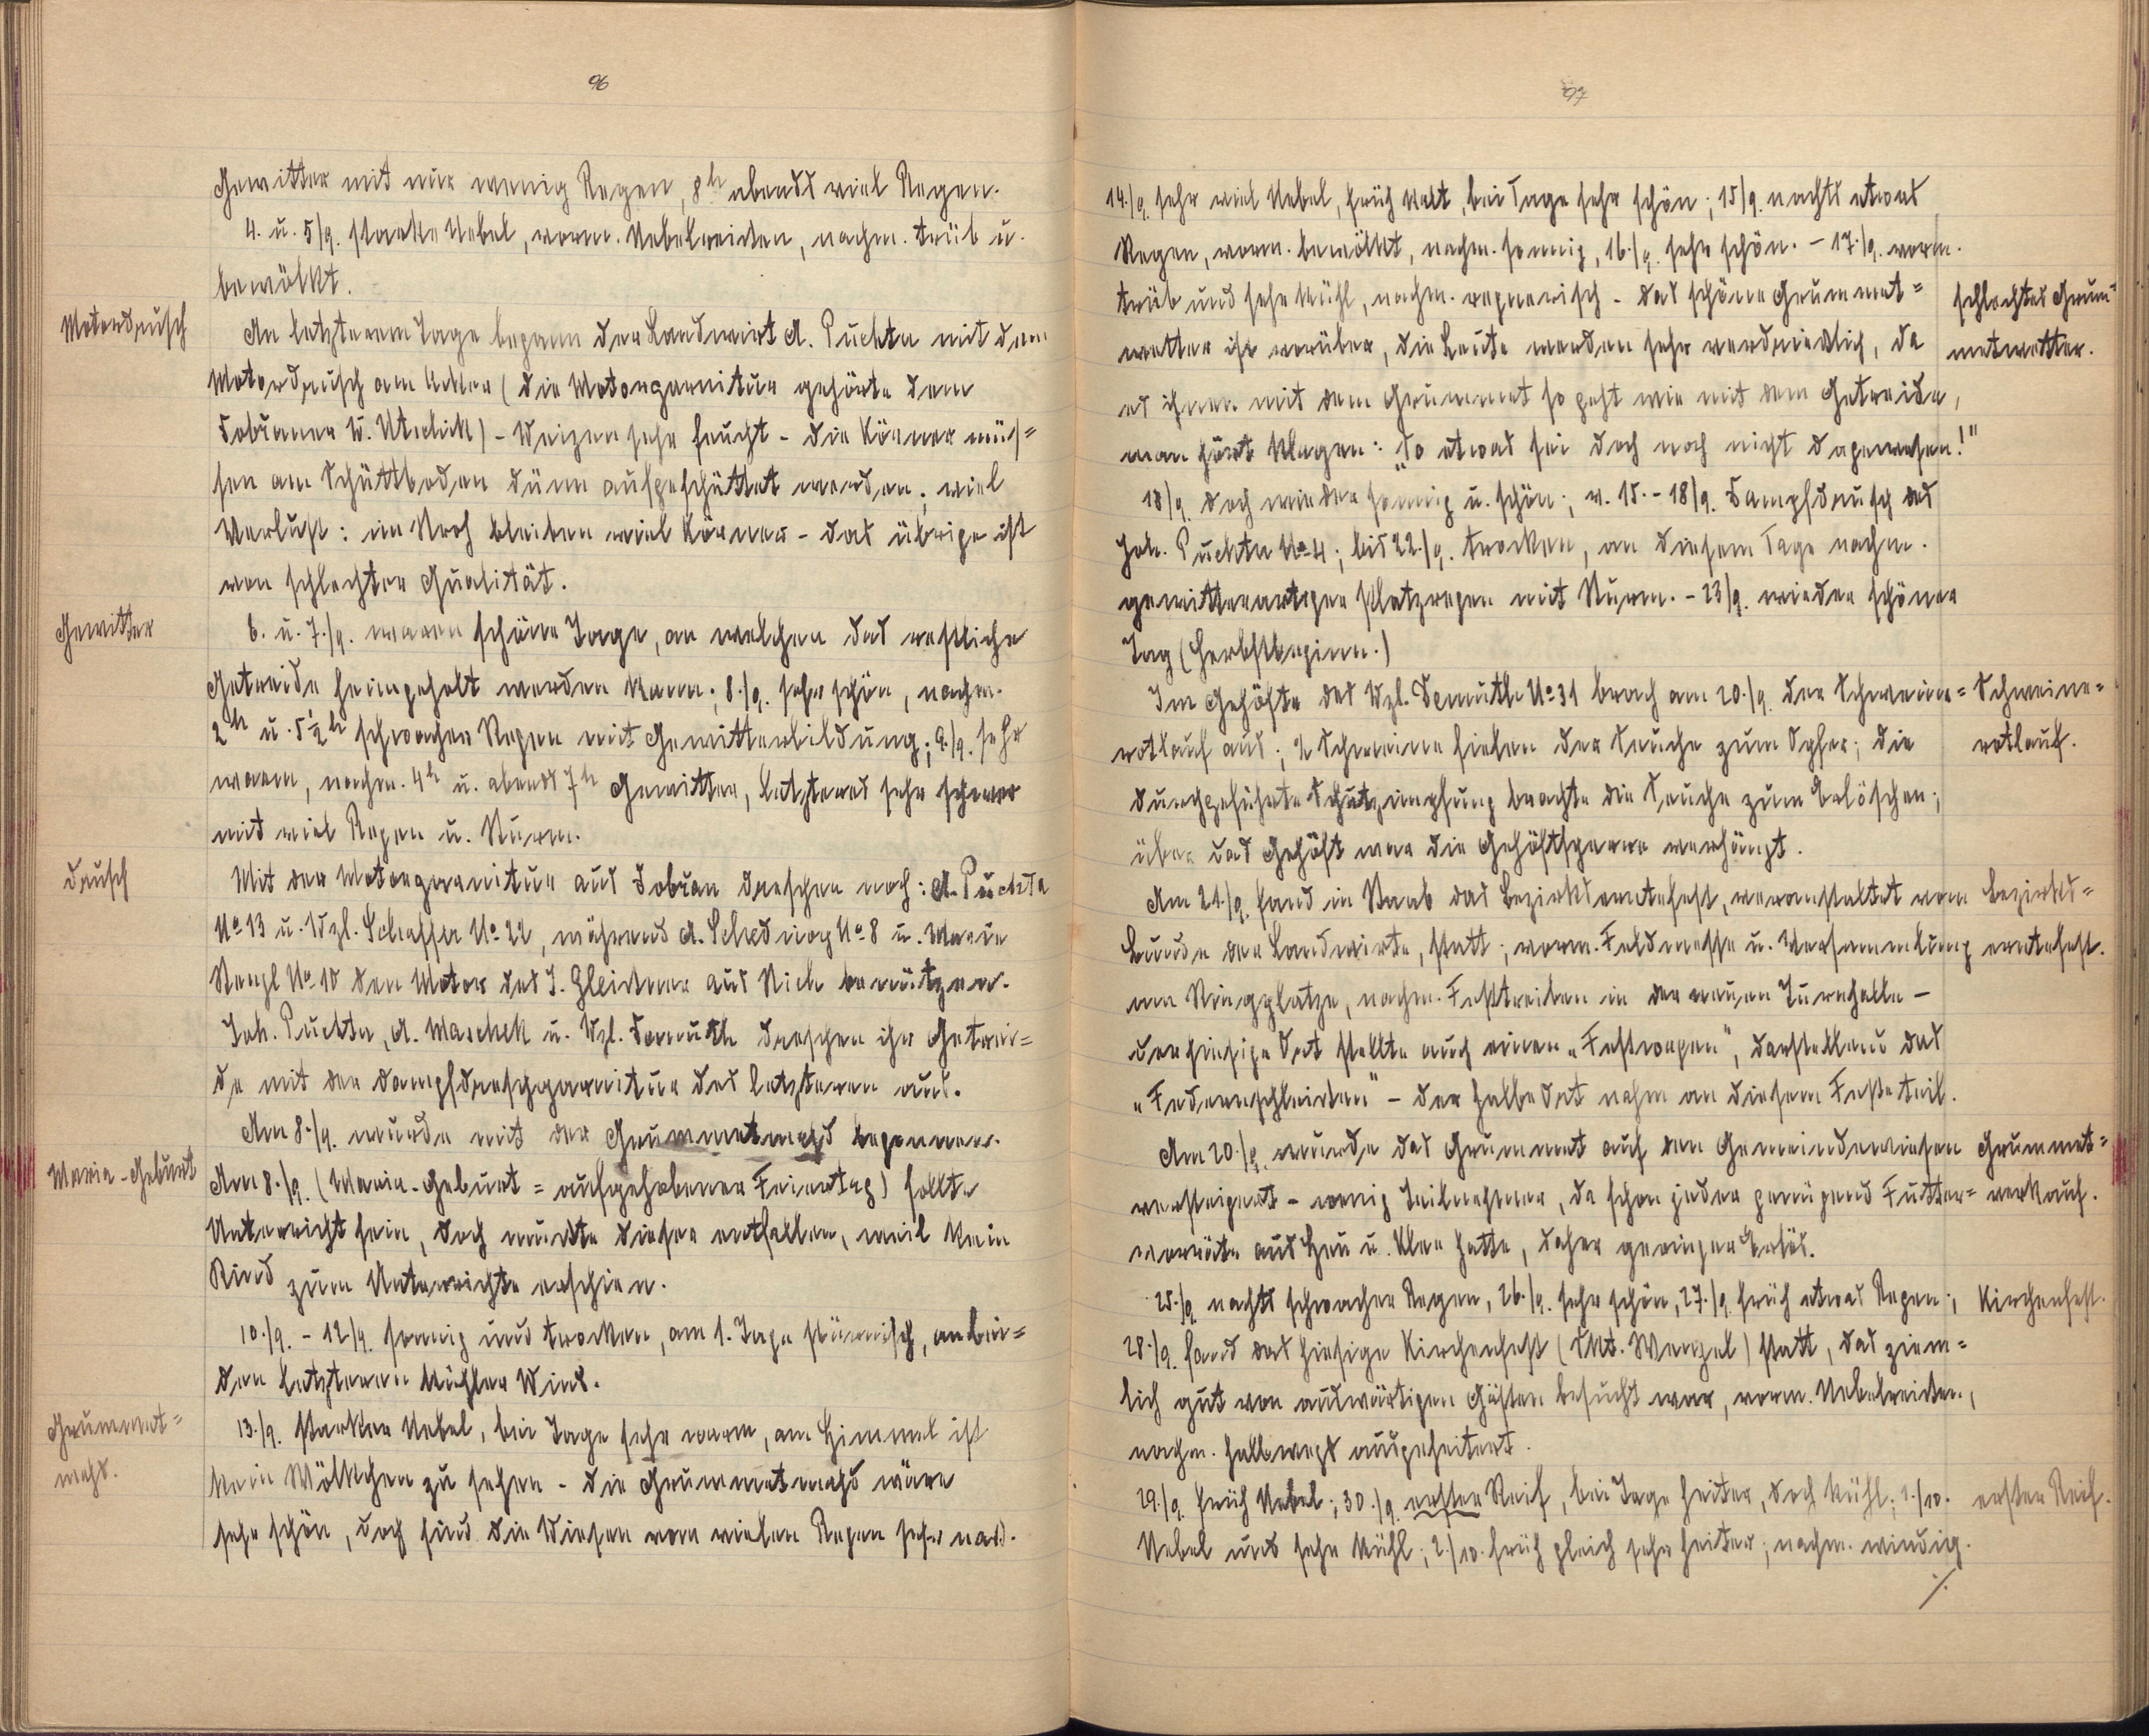 96
Gewitter mit nur wenig Regen, 8h abends viel Regen.
4. u. 5/9. starke Nebel, vorm. Nebelreißen, nachm. trüb u.
bewölkt.
Motordrusch
An letzterem Tage begann der Landwirt A. Puchta mit dem
Motordrusch am Acker (die Motorgarnitur gehörte dem
Dobraner W. Utschik) - Weizen sehr feucht - die Körner müs=
sen am Schüttboden dünn aufgeschüttet werden; viel
Verlust: im Stroh bleiben viel Körner - das übrige ist
von schlechter Qualität.
Gewitter
6. u. 7./9. waren schöne Tage, an welchen das restliche
Getreide heimgeholt werden kann; 8./9. sehr schön, nachm.
2h u. 5½h schwacher Regen mit Gewitterbildung; 9./9. sehr
warm, nachm. 4h u. abends 7h Gewitter, letzteres sehr schwer
mit viel Regen u. Sturm.
Drusch
Mit der Motorgarnitur aus Dobran dreschen noch: A. Puchta
No 13 u. Wzl. Schaffer No 22, während A. No 8 u. Marie
Stengl No 10 den Motor des J. Gleixner aus Stich benützen.
Joh. Puchta, A. Maschek u. Wzl. Demuth dreschen ihr Getrei=
de mit der Dampfdreschgarnitur des letzteren aus.
Am 8./9. wurde mit der Grummetmahd begonnen.
Maria-Geburt
Am 8./9. (Maria-Geburt = aufgehobener Feiertag) sollte
Unterricht sein, doch mußte dieser entfallen, weil kein
Kind zum Unterrichte erschien.
10./9. - 12/9. sonnig und trocken, am 1. Tage stürmisch, an bei=
den letzteren kühler Wind.
Grummet=
mahd.
13./9. starker Nebel, bei Tage sehr warm, am Himmel ist
kein Wölkchen zu sehen - die Grummetmahd wäre
sehr schön, doch sind die Wiesen vom vielen Regen sehr naß.
97
14./9. sehr viel Nebel, früh kalt, bei Tage sehr schön; 15/9. nachts etwas
Regen, vorm. bewölkt, nachm. sonnig, 16./9. sehr schön. - 17./9. vorm.
trüb und sehr kühl, nachm. regnerisch - das schöne Grummet=
schlechtes Grum=
wetter ist vorüber, die Leute werden sehr verdrießlich, da
metwetter.
es ihnen mit dem Grummet so geht wie mit dem Getreide,
man hört klagen: „So etwas sei doch noch nicht dagewesen!"
18/9. doch wieder sonnig u. schön; v. 15.-18/9. Dampfdrusch des
Joh. Puchta No 4; bis 22./9. trocken, an diesem Tage nachm.
gewitterartiger Platzregen mit Sturm. - 23/9. wieder schöner
Tag (Herbstbeginn.)
Im Gehöfte des Wzl. Demuth No 31 brach am 20./9. der Schweine=
Schweine=
rotlauf aus; 2 Schweine fielen der Seuche zum Opfer; die
rotlauf.
durchgeführte Schutzimpfung brachte die Seuche zum Erlöschen;
über das Gehöft war die Gehöftsperre verhängt.
Am 21./9. fand in Staab das Bezirkserntefest, veranstaltet vom
Bezirks=
Bunde der Landwirte, statt; vorm. Feldmesse u. Versammlung
erntefest.
am Ringplatze, nachm. Festtreiben in der neuen Turnhalle -
der hiesige Ort stellte auch einen „Festwagen", darstellend das
„Federnschleißen" - der halbe Ort nahm an diesem Feste teil.
Am 20./9. wurde das Grummet auf den Gemeindewiesen
Grummet=
versteigert - wenig Teilnehmer, da schon jeder genügend Futter=
verkauf.
vorräte aus Heu u. Klee hatte, daher geringer Erlös.
25./9. nachts schwacher Regen, 26./9. sehr schön, 27./9. früh etwas Regen;
Kirchenfest.
28./9. fand das hiesige Kirchenfest (Skt. Wenzel) statt, das ziem=
lich gut von auswärtigen Gästen besucht war, vorm. Nebelreißen,
nachm. halbwegs ausgeheitert.
29./9. früh Nebel; 30./9. erster Reif, bei Tage heiter, doch kühl; 1./10.
erster Reif.
Nebel und sehr kühl; 2./10. früh gleich sehr heiter, nachm. windig.
./.